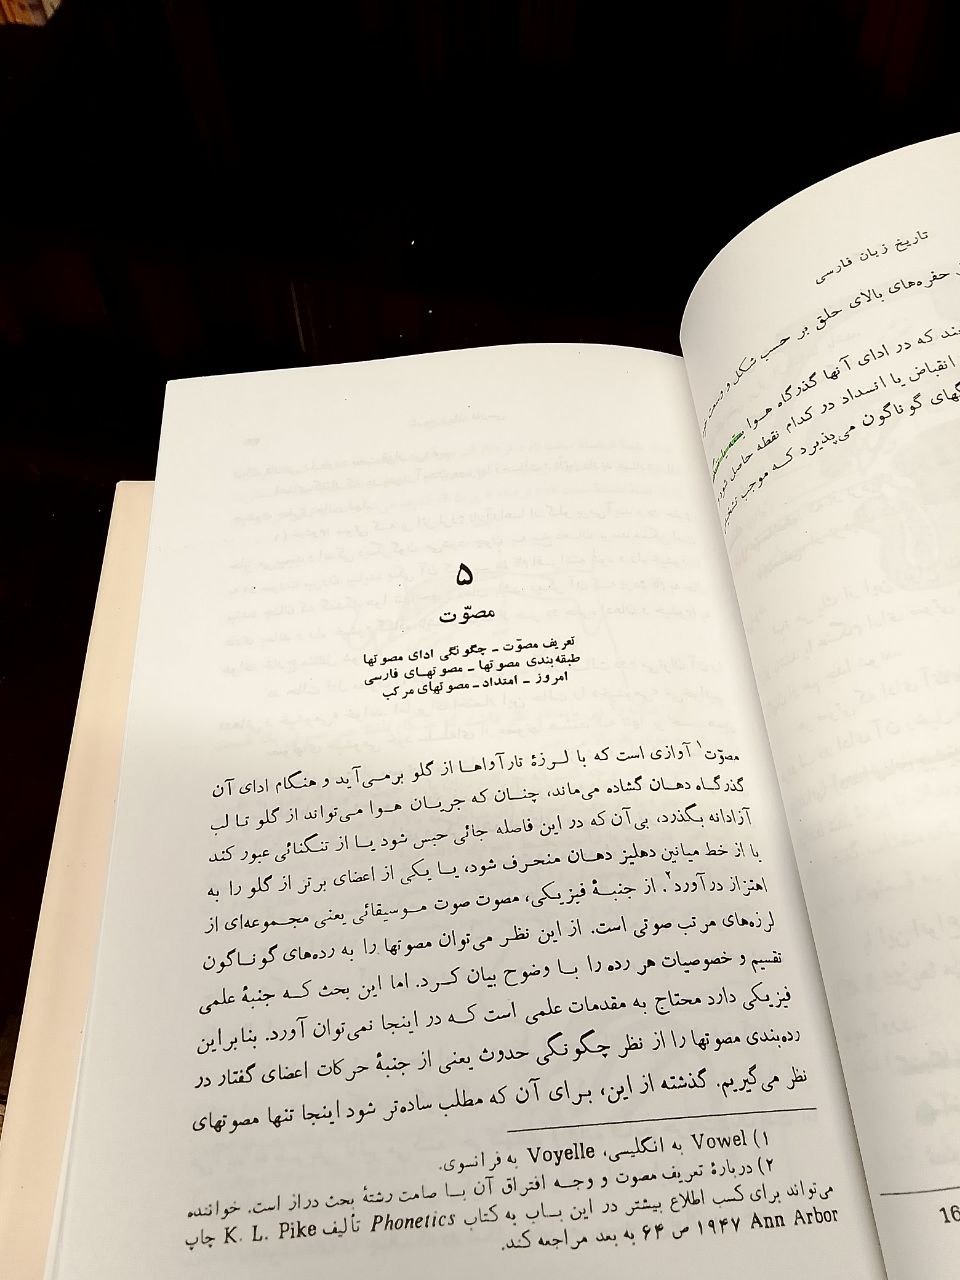 تاریخ زبان فارسی
حفره‌های بالای حلق بر حسب شکل و وسعت
که در ادای آنها گذرگاه هوا
انقباض یا انسداد در کدام نقطه حاصل شود
گوناگون می‌پذیرد که موجب
۵
مصوّت
تعریف مصوّت - چگونگی ادای مصوتها
طبقه‌بندی مصوتها - مصوتهای فارسی
امروز - امتداد - مصوتهای مرکب
مصوّت۱ آوازی است که با لرزهٔ تارآواها از گلو برمی‌آید و هنگام ادای آن
گذرگاه دهان گشاده می‌ماند، چنان که جریان هوا می‌تواند از گلو تا لب
آزادانه بگذرد، بی‌آن که در این فاصله جائی حبس شود یا از تنگنائی عبور کند
یا از خط میانین دهلیز دهان منحرف شود، یا یکی از اعضای برتر از گلو را به
اهتزاز درآورد۲. از جنبهٔ فیزیکی، مصوت صوت موسیقائی یعنی مجموعه‌ای از
لرزه‌های مرتب صوتی است. از این نظر می‌توان مصوتها را به رده‌های گوناگون
تقسیم و خصوصیات هر رده را با وضوح بیان کرد. اما این بحث که جنبهٔ علمی
فیزیکی دارد محتاج به مقدمات علمی است که در اینجا نمی‌توان آورد. بنابراین
رده‌بندی مصوتها را از نظر چگونگی حدوث یعنی از جنبهٔ حرکات اعضای گفتار در
نظر می‌گیریم. گذشته از این، برای آن که مطلب ساده‌تر شود اینجا تنها مصوتهای
۱) Vowel به انگلیسی، Voyelle به فرانسوی.
۲) دربارهٔ تعریف مصوت و وجه افتراق آن با صامت رشتهٔ بحث دراز است. خواننده
می‌تواند برای کسب اطلاع بیشتر در این باب به کتاب Phonetics تألیف K. L. Pike چاپ
Ann Arbor ۱۹۴۷ ص ۶۴ به بعد مراجعه کند.